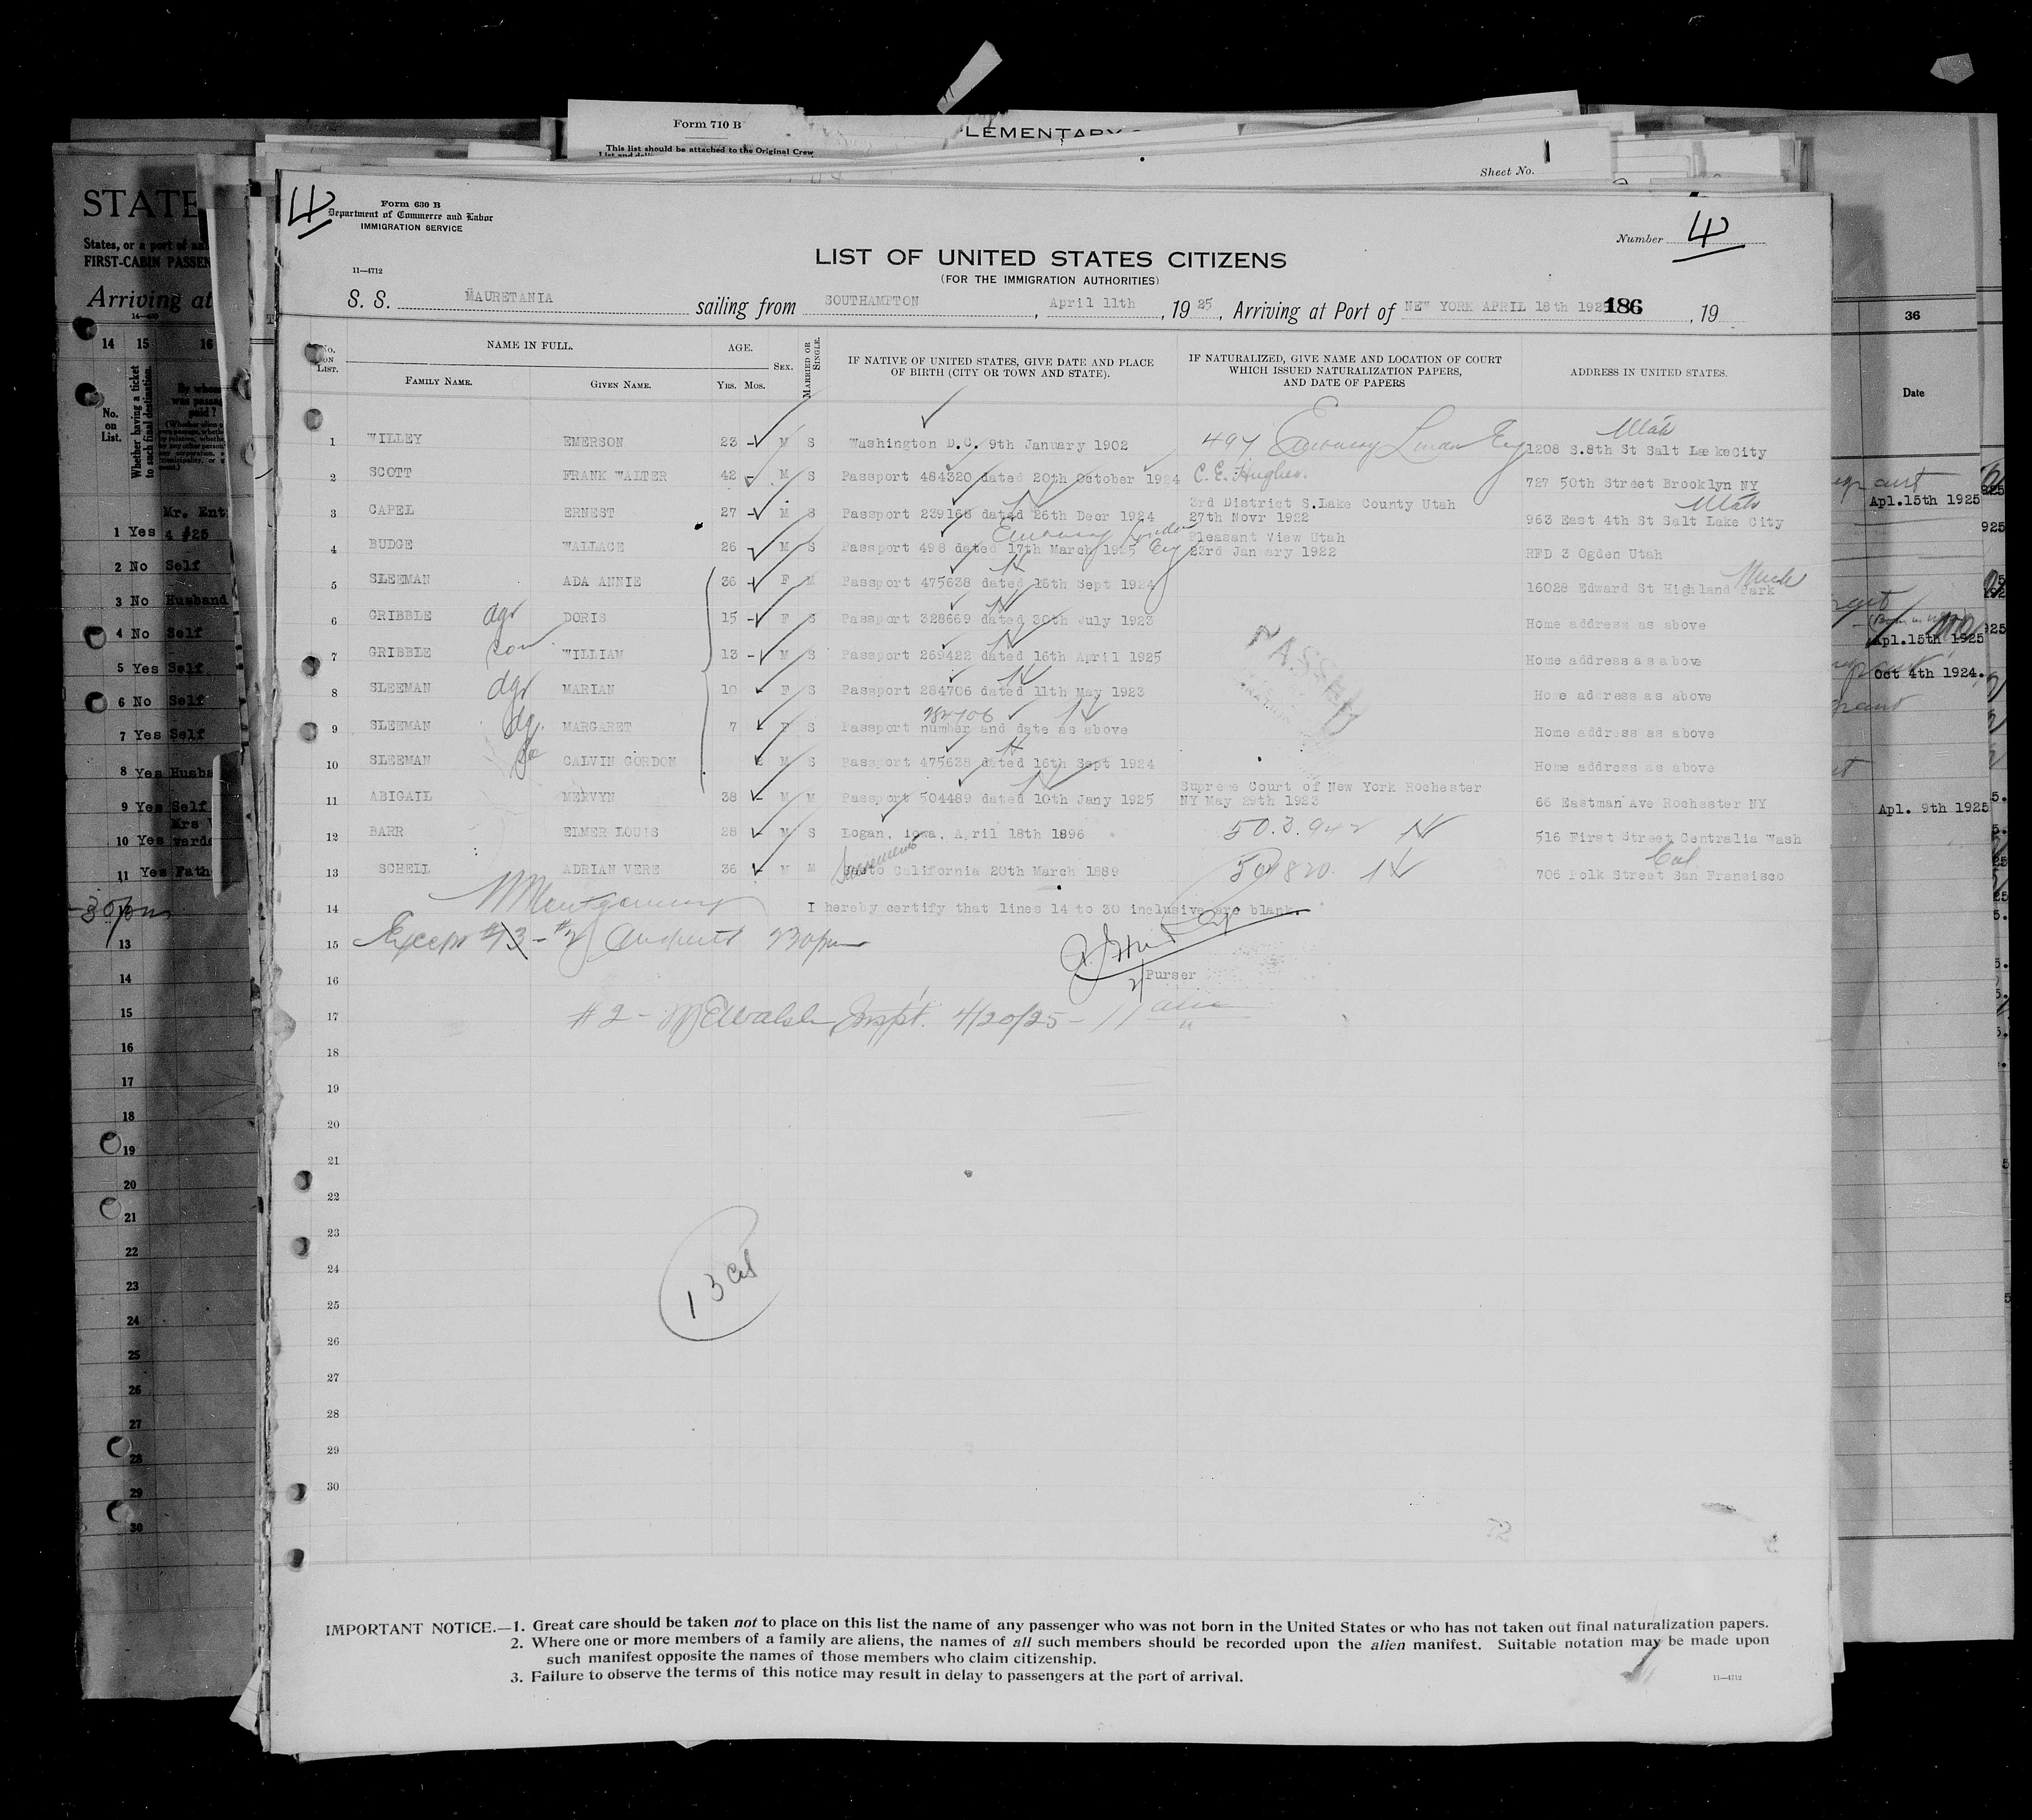 Form 710 B
This list should be attached to the Original Crew
LEMENTARY
Sheet No. 1
STATE
States, or a port of
FIRST-CABIN PASSEN
Arriving at
14 15 16
No. on List.
Whether having a ticket to such final destination.
By whom was passage paid?
1 Yes
2 No Self
3 No Husband
4 No Self
5 Yes Self
6 No Self
7 Yes Self
8 Yes Husba
9 Yes Self
10 Yes
11 Yes Fath
13
14
15
16
17
18
19
20
21
22
23
24
25
26
27
28
29
30
4
Form 630 B
Department of Commerce and Labor
IMMIGRATION SERVICE
Number 4
LIST OF UNITED STATES CITIZENS
(FOR THE IMMIGRATION AUTHORITIES)
11—4712
S. S. MAURETANIA sailing from SOUTHAMPTON, April 11th, 1925, Arriving at Port of NEW YORK APRIL 18th 192 186, 19
No. on List. NAME IN FULL. AGE. Sex. Married or Single. IF NATIVE OF UNITED STATES, GIVE DATE AND PLACE OF BIRTH (CITY OR TOWN AND STATE). IF NATURALIZED, GIVE NAME AND LOCATION OF COURT WHICH ISSUED NATURALIZATION PAPERS, AND DATE OF PAPERS ADDRESS IN UNITED STATES.
Family Name. Given Name. Yrs. Mos.
1 WILLEY EMERSON 23 M S Washington D.C. 9th January 1902 497 Embassy London Eng Utah 1208 S.8th St Salt Lake City
2 SCOTT FRANK WALTER 42 M S Passport 484320 dated 20th October 1924 C. E. Hughes. 727 50th Street Brooklyn NY
3 CAPEL ERNEST 27 M S Passport 239168 dated 26th Decr 1924 3rd District S.Lake County Utah 27th Novr 1922 Utah 963 East 4th St Salt Lake City
4 BUDGE WALLACE 26 M S Passport 498 dated 17th March 1925 Embassy London Eng Pleasant View Utah 23rd January 1922 RFD 3 Ogden Utah
5 SLEEMAN ADA ANNIE 36 F M Passport 475638 dated 16th Sept 1924 16028 Edward St Highland Park Mich
6 GRIBBLE dgr DORIS 15 F S Passport 328669 dated 30th July 1923 Home address as above
7 GRIBBLE son WILLIAM 13 M S Passport 269422 dated 16th April 1925 Home address as above
8 SLEEMAN dgr MARIAN 10 F S Passport 284706 dated 11th May 1923 Home address as above
9 SLEEMAN dg. MARGARET 7 F S Passport number and date as above 284706 Home address as above
10 SLEEMAN CALVIN GORDON M S Passport 475638 dated 16th Sept 1924 Home address as above
11 ABIGAIL MERVYN 38 M M Passport 504489 dated 10th Jany 1925 Supreme Court of New York Rochester NY May 29th 1923 66 Eastman Ave Rochester NY
12 BARR ELMER LOUIS 28 M S Logan, Iowa, April 18th 1896 503942 N 516 First Street Centralia Wash
13 SCHELL ADRIAN VERE 36 M M Sacramento California 20th March 1889 N Cal 706 Polk Street San Fransisco
14 WMontgomery I hereby certify that lines 14 to 30 inclusive are blank.
15 Except #13 - #2
16 Purser
17 #2 - Walsh Inspt. 4/20/25 - 11 am
18
19
20
21
22
23
24
25
26
27
28
29
30
PASSED
13 Cit
72
IMPORTANT NOTICE.—1. Great care should be taken not to place on this list the name of any passenger who was not born in the United States or who has not taken out final naturalization papers.
2. Where one or more members of a family are aliens, the names of all such members should be recorded upon the alien manifest. Suitable notation may be made upon
such manifest opposite the names of those members who claim citizenship.
3. Failure to observe the terms of this notice may result in delay to passengers at the port of arrival.
11—4712
36
Date
Apl.15th 1925
Apl.15th 1925
Oct 4th 1924.
Apl. 9th 1925